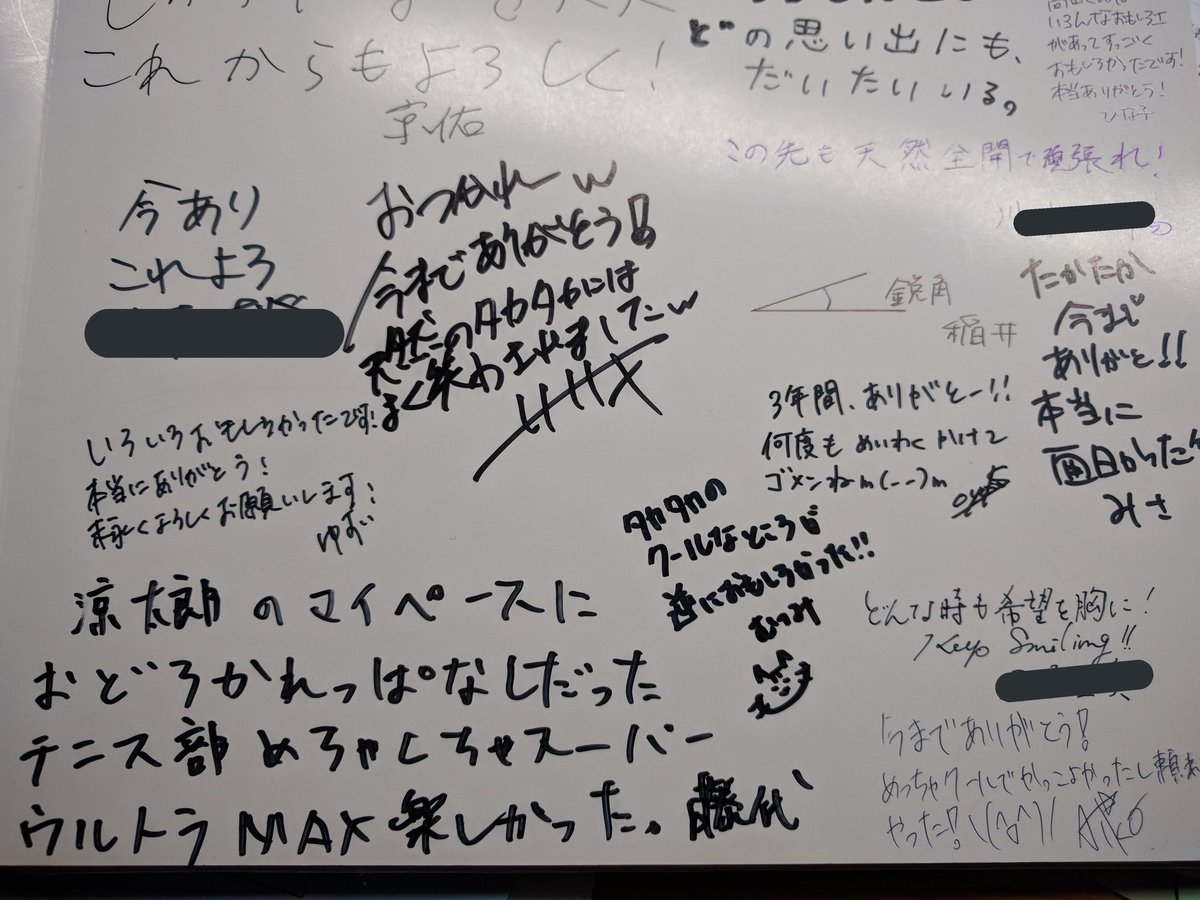 これからもよろしく!
どの思い出にも、
だいたいいる。
いろんなおもしろさ
があってすっごく
おもしろかったです!
本当ありがとう!
ひな子
この先も天然全開で頑張れ!
今あり
これよろ
おつかれーw
今までありがとう!
天然のタカタカには
よく笑わされましたw
鋭角
稲井
たかたか
今まで
ありがと!!
本当に
面白かった
みさ
いろいろおもしろかったです!
本当にありがとう!
末永くよろしくお願いします!
ゆず
3年間、ありがとー!!
何度もめいわくかけて
ゴメンねm(--)m
タカタカの
クールなところが
逆におもしろかった!!
むつみ
涼太朗のマイペースに
おどろかれっぱなしだった
テニス部めちゃくちゃスーパー
ウルトラMAX楽しかった。藤代
どんな時も希望を胸に!
Keep Smiling!!
今までありがとう!
めっちゃクールでかっこよかったし頼れ
やった!\(^^)/ Aiko